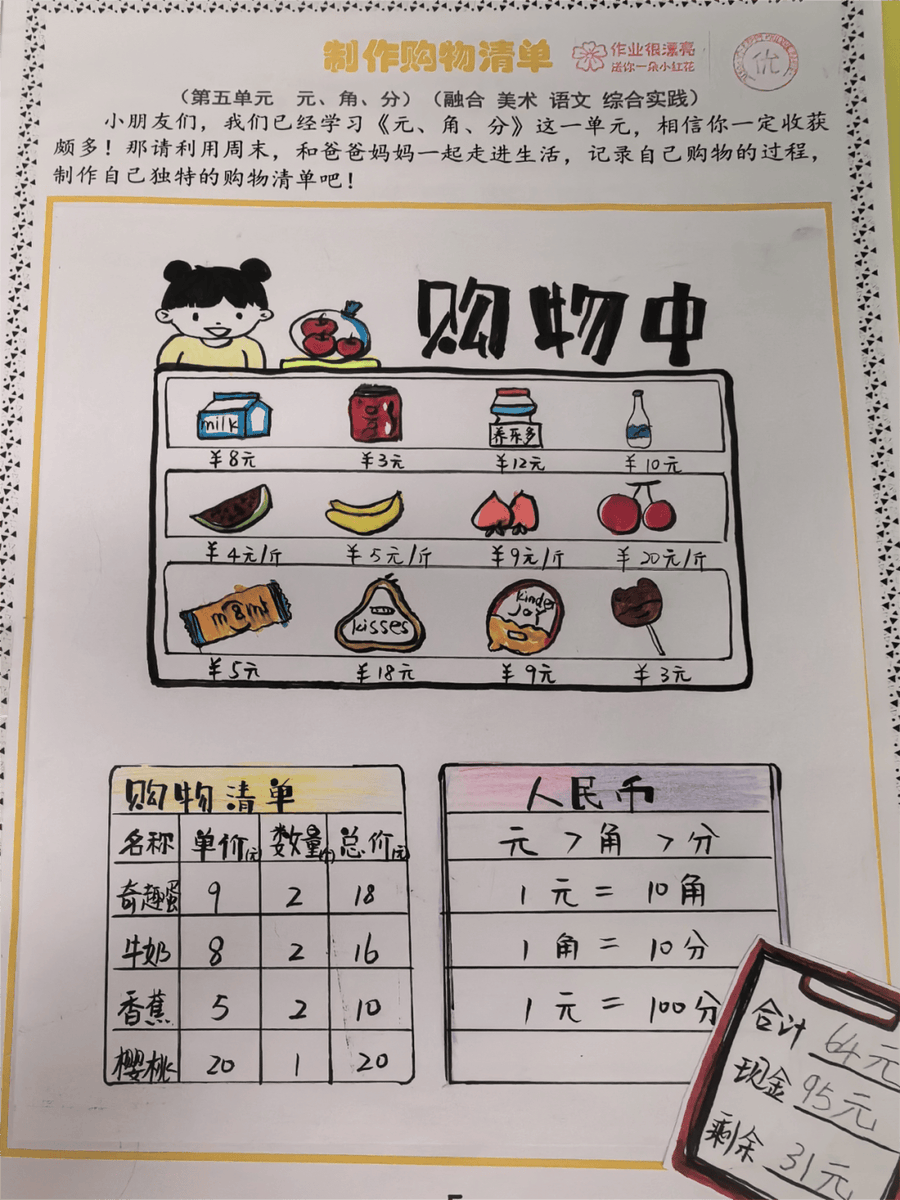 制作购物清单
作业很漂亮
送你一朵小红花
优
（第五单元 元、角、分）（融合 美术 语文 综合实践）
小朋友们，我们已经学习《元、角、分》这一单元，相信你一定收获
颇多！那请利用周末，和爸爸妈妈一起走进生活，记录自己购物的过程，
制作自己独特的购物清单吧！
购物中
milk
养乐多
￥8元 ￥3元 ￥12元 ￥10元
￥4元/斤 ￥5元/斤 ￥9元/斤 ￥20元/斤
m&m's
kisses
kinder
JOY
￥5元 ￥18元 ￥9元 ￥3元
购物清单
名称 单价(元) 数量(个) 总价(元)
奇趣蛋 9 2 18
牛奶 8 2 16
香蕉 5 2 10
樱桃 20 1 20
人民币
元>角>分
1元=10角
1角=10分
1元=100分
合计 64元
现金 95元
剩余 31元